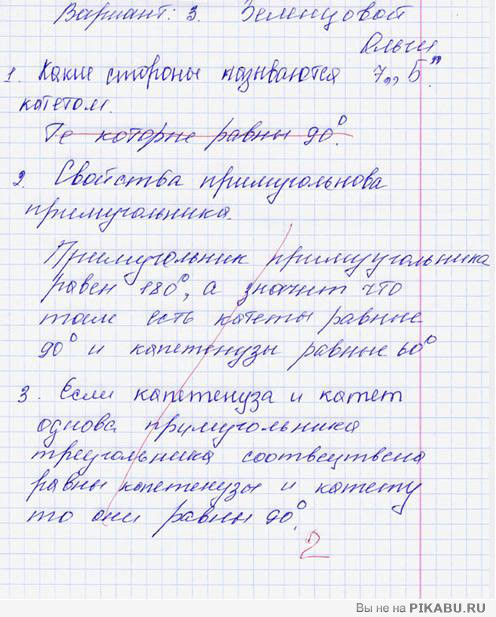 Вариант: 3. Зеленцовой
Ольги
1. Какие стороны называются 7 „Б"
катетом.
Те которые равны 90°.
2. Свойства примугольнова
примугольника.
Примугольник примуугольника
равен 180°, а значит что
там есть катеты равные
90° и капетенузы равные 60°
3. Если капетенуза и катет
однова примугольника
треугольника соотвеутвена
равны капетенузы и катету
то они равны 90°.
2
Вы не на PIKABU.RU